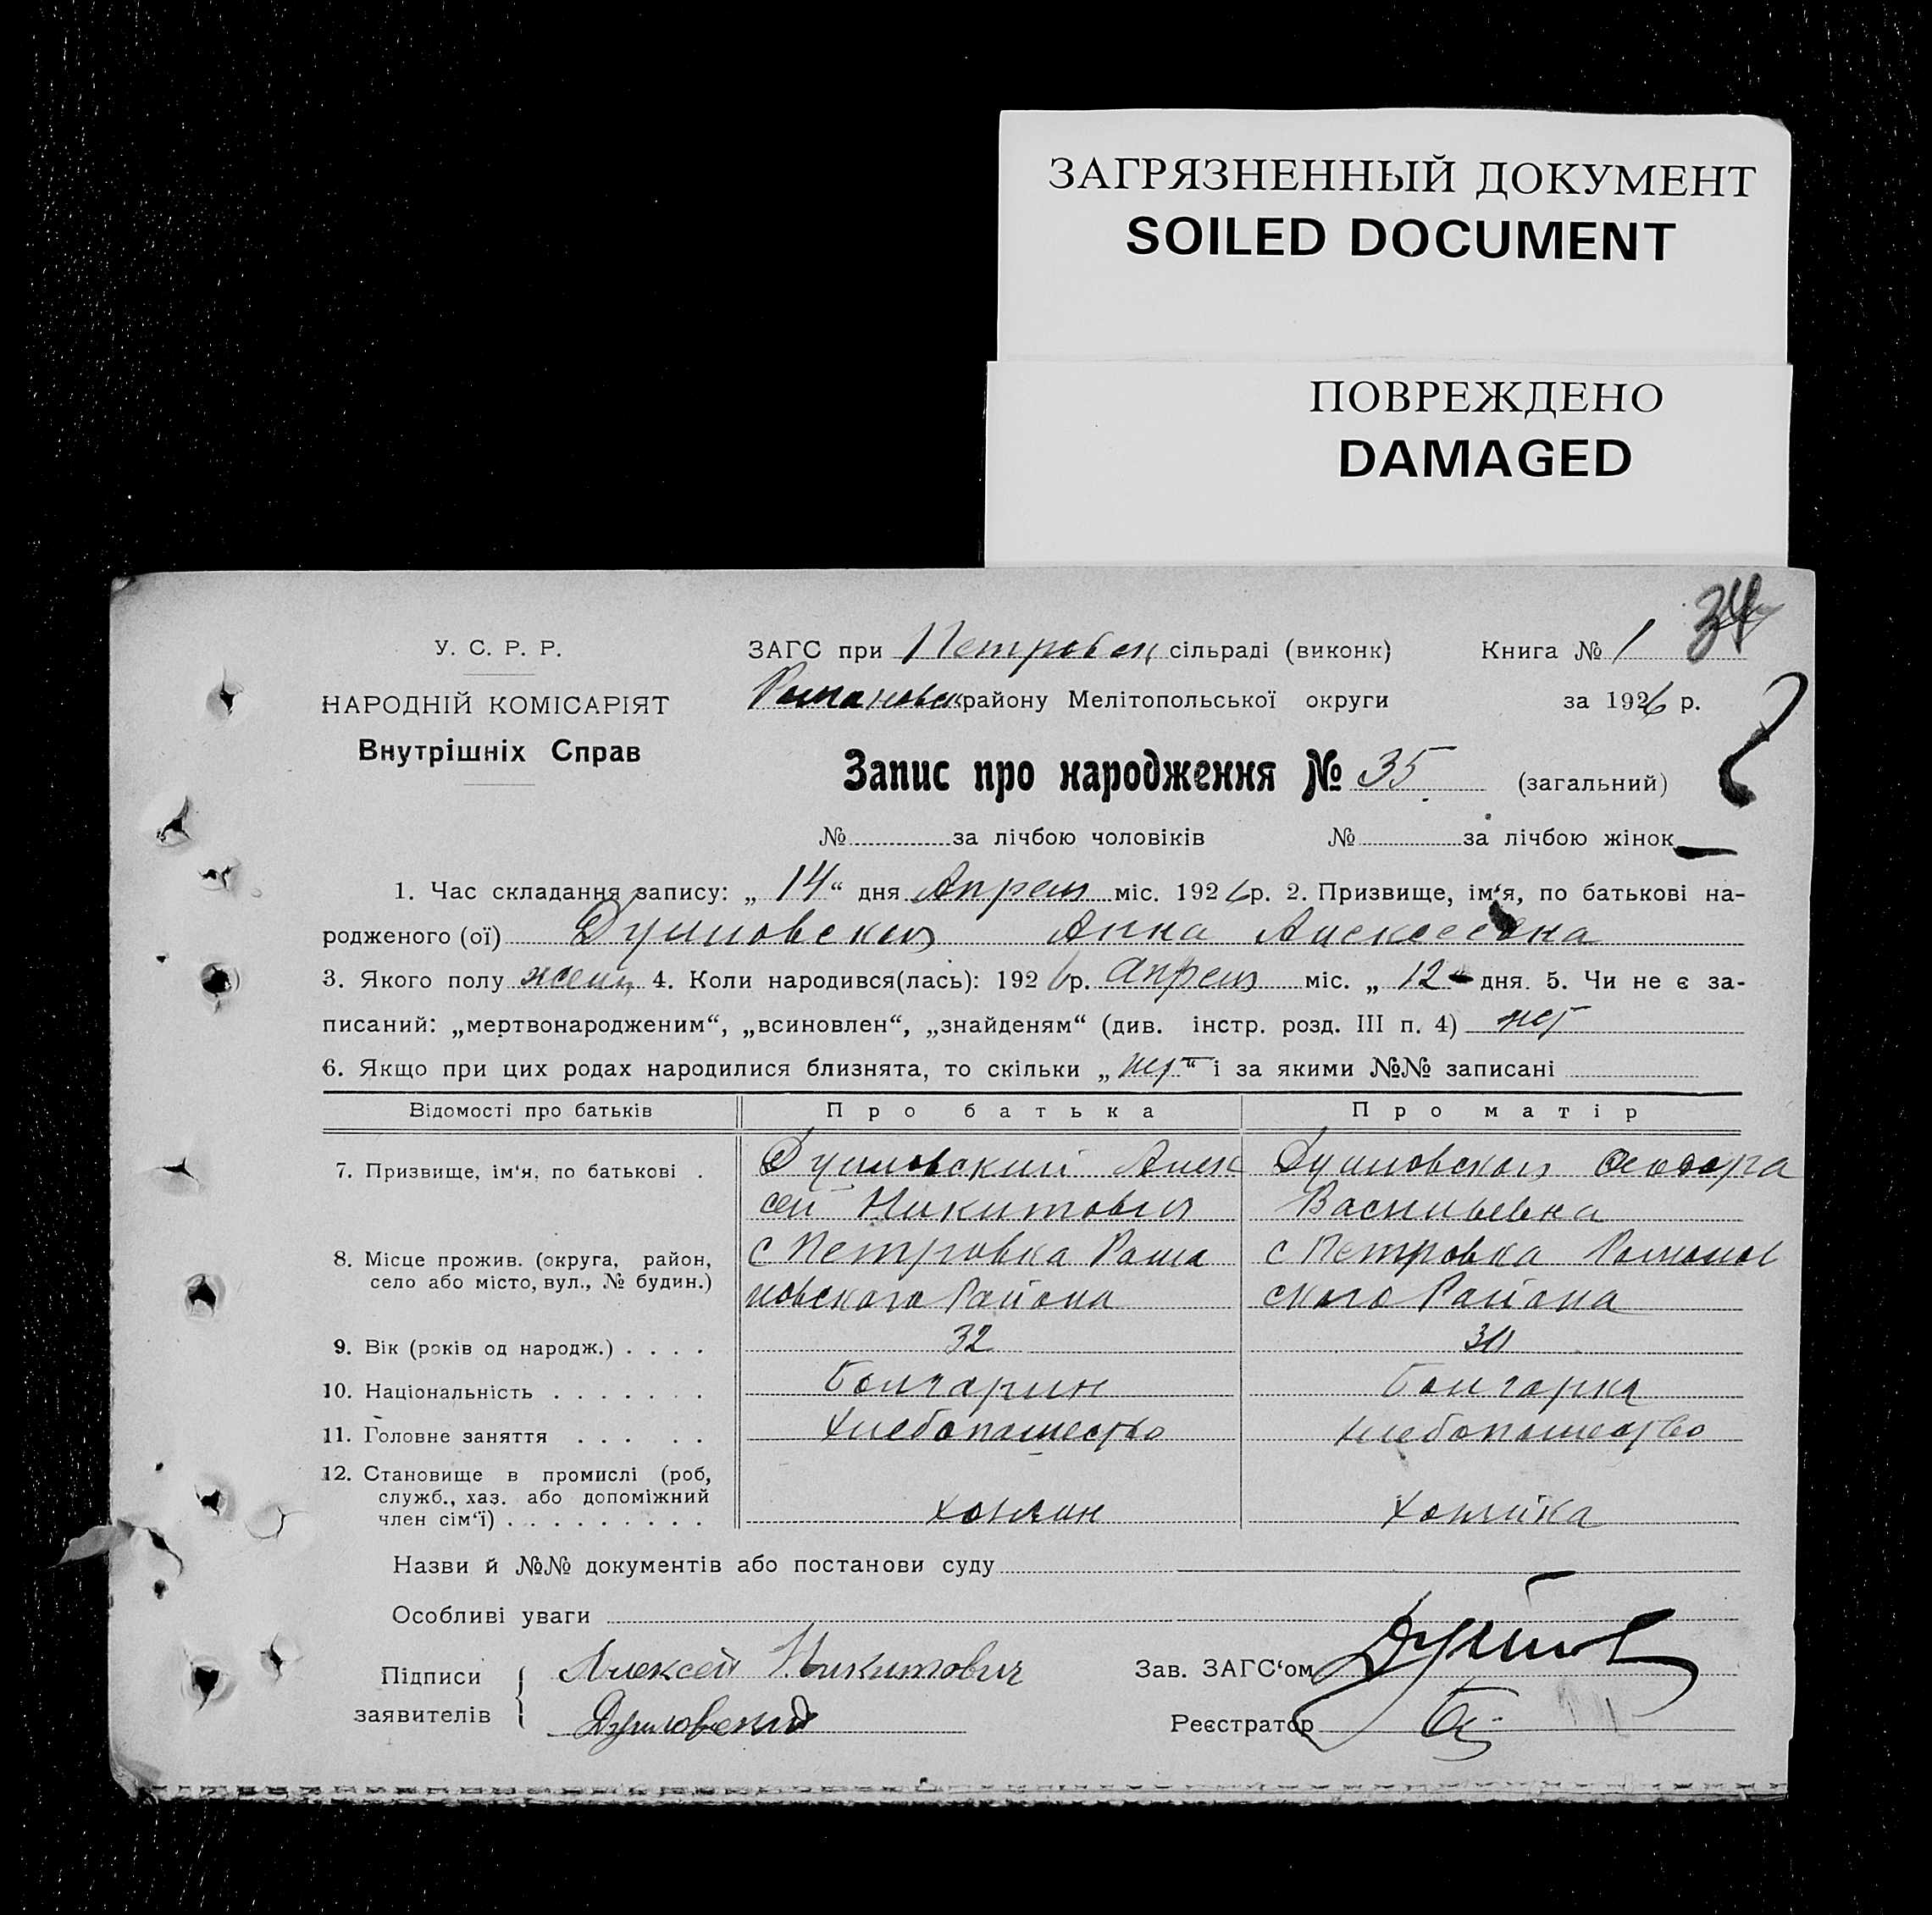 ЗАГРЯЗНЕННЫЙ ДОКУМЕНТ
SOILED DOCUMENT
ПОВРЕЖДЕНО
DAMAGED
34
У. С. Р. Р.
НАРОДНІЙ КОМІСАРІЯТ
Внутрішніх Справ
ЗАГС при Петровск сільраді (виконк) Книга № 1
Романовск району Мелітопольської округи за 1926 р.
Запис про народження № 35 (загальний)
№ за лічбою чоловіків № за лічбою жінок
1. Час складання запису: „ 14 “ дня Апреля міс. 1926 р. 2. Призвище, ім‘я, по батькові на-
родженого (ої) Анна Алексеевна
3. Якого полу женц 4. Коли народився(лась): 1926 р. апреля міс. „ 12 “ дня. 5. Чи не є за-
писаний: „мертвонародженим“, „всиновлен“, „знайденям“ (див. інстр. розд. III п. 4) нет
6. Якщо при цих родах народилися близнята, то скільки „ нет “ і за якими №№ записані
Відомості про батьків Про батька Про матір
7. Призвище, ім‘я, по батькові . Алек
сей Никитович Васильевна
8. Місце прожив. (округа, район, с Петровка Рома с Петровка Романов
село або місто, вул., № будин.) новского Района ского Района
9. Вік (років од народж.) . . . . 32
10. Національність . . . . . . . Болгарин Болгарка
11. Головне заняття . . . . . Хлебопашество хлебопашество
12. Становище в промислі (роб,
служб., хаз. або допоміжний
член сім‘ї) . . . . . . . . .
Назви й №№ документів або постанови суду
Особливі уваги
Підписи Алексей Никитович Зав. ЗАГС‘ом
заявителів Реєстратор